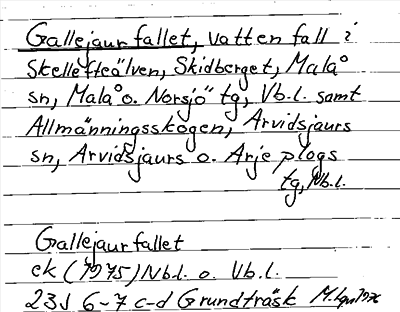 Gallejaurfallet, vattenfall i
Skellefteälven, Skidberget, Malå
sn, Malå o. Norsjö tg, Vb.l. samt
Allmänningsskogen, Arvidsjaurs
sn, Arvidsjaurs o. Arjeplogs
tg, Nb.l.
Gallejaurfallet
ek (1975) Nb.l. o. Vb.l.
23J 6-7 c-d Grundträsk